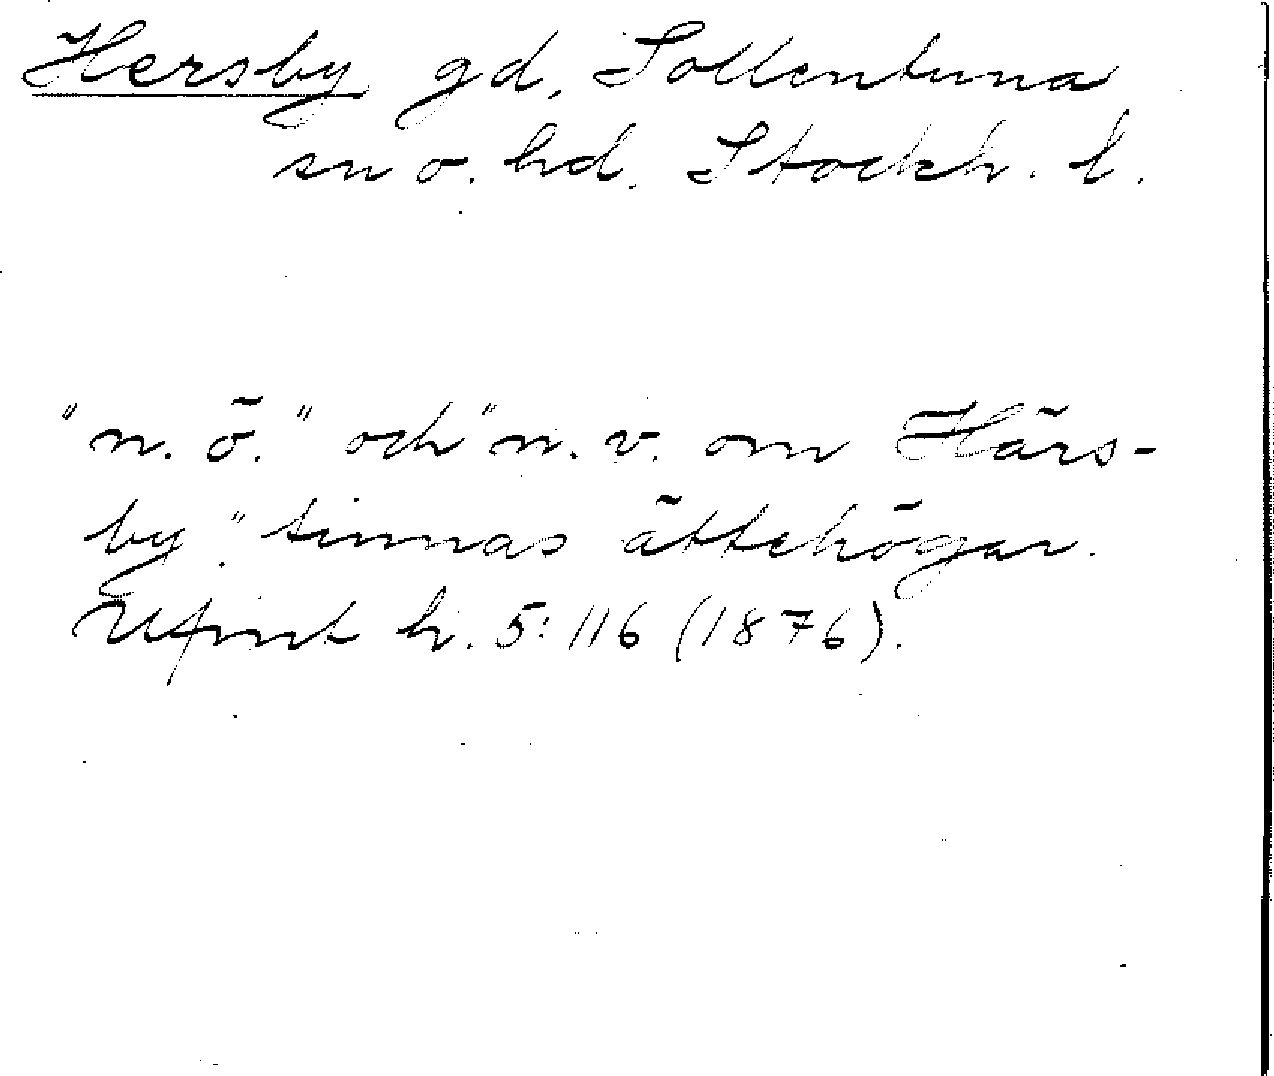 Hersby gd, Sollentuna
sn o. hd. Stockh. l.
"n. ö." och "n. v. om Härs-
by." finnas ättehögar.
Ufmt h. 5: 116 (1876).